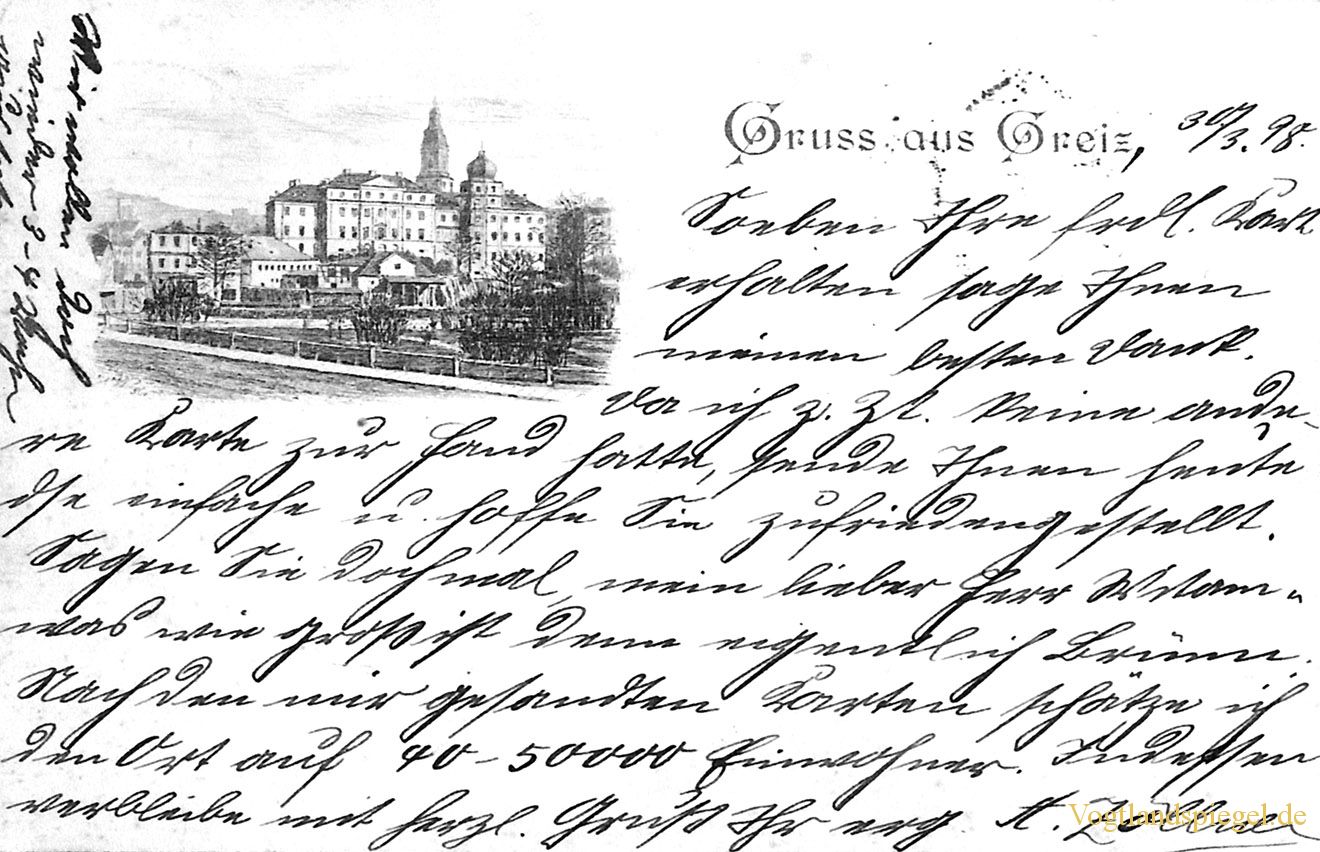 Gruss aus Greiz, 30/3. 98.
Soeben Ihre frdl. Karte
erhalten sage Ihnen
meinen besten Dank.
Da ich z. Zt. keine ande-
re Karte zur Hand hatte, sende Ihnen heute
dse einfache u. hoffe Sie zufriedengestellt.
Sagen Sie doch mal, mein lieber Herr
was wie groß ist denn eigentlich Brünn.
Nach den mir gesandten Karten schätze ich
den Ort auf 40-50000 Einwohner. Indessen
verbleibe mit herzl. Gruß Ihr erg. A.
Wir wollen
3-4
Vogtlandspiegel.de